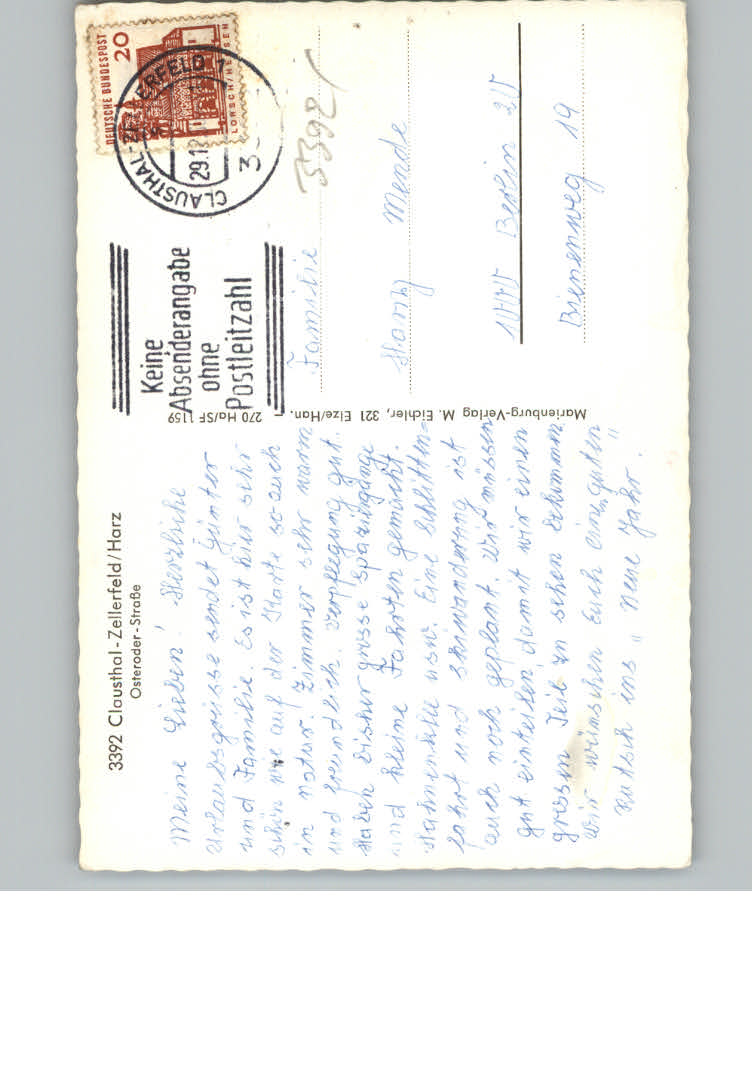 3392 Clausthal-Zellerfeld/Harz
Osteroder-Straße
Meine Lieben! Herzliche
Urlaubsgrüsse sendet Günter
und Familie. Es ist hier sehr
schön wie auf der Karte so auch
in natur. Zimmer sehr warm
und freundlich. Verpflegung gut.
Haben bisher grosse Spaziergänge
und kleine Fahrten gemacht.
Hahnenklee usw. Eine Schlitten-
fahrt und Skiwanderung ist
auch noch geplant. Wir müssen
gut einteilen, damit wir einen
grossen Teil zu sehen bekommen
Wir wünschen Euch einen guten
rutsch ins „Neue Jahr."
Marienburg-Verlag M. Eichler, 321 Elze/Han. – 270 Ha/SF 1159
Keine
Absenderangabe
ohne
Postleitzahl
CLAUSTHAL-ZELLERFELD 1
29.12
3
DEUTSCHE BUNDESPOST
20
LORSCH/HESSEN
3392/
Familie
Mende
1000 Berlin 20
Bienenweg 19